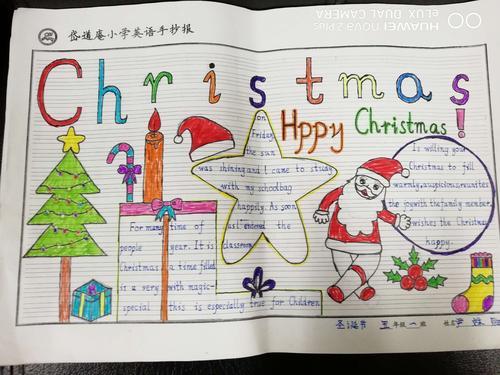 HUAWEI nova 2 Plus
DUAL CAMERA
岱道庵小学英语手抄报
Christmas
Hppy Christmas!
on
Friday
the sun
was shining and I came to study
with my schoolbag
happily. As soon
entered the
classroom
Is willing your
Christmas to fill
warmly, auspicious, reunites
the joy with the family member,
wishes the Christmas
happy.
For many time of
people year. It is
Christmas a time filled
is a very with magic-
special this is especially true for Children
圣诞节 五年级一班 姓名